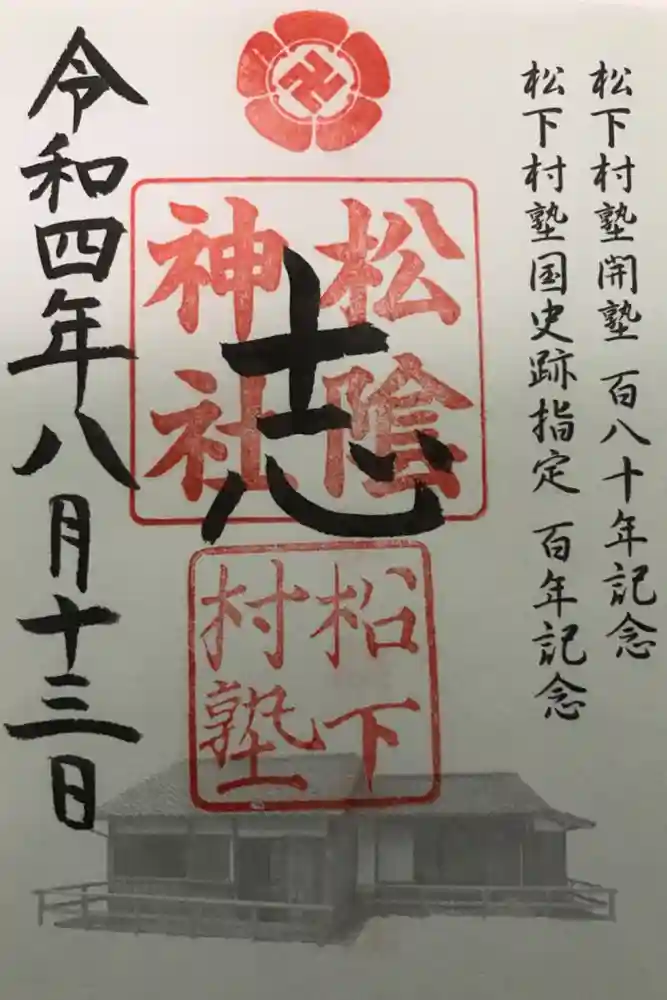 松下村塾開塾 百八十年記念
松下村塾国史跡指定 百年記念
松陰
神社
志
松下
村塾
令和四年八月十三日